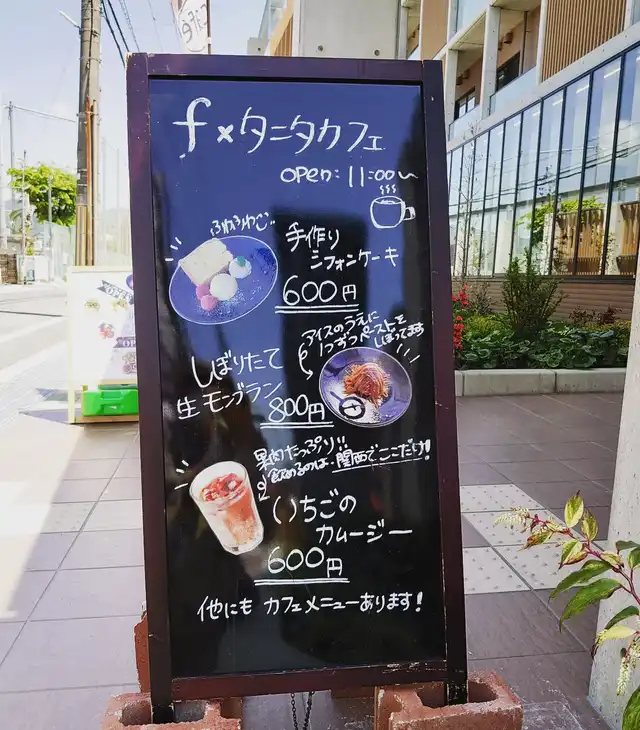 Cafe
f×タニタカフェ
OPEN:11:00~
ふわふわ
手作り
シフォンケーキ
600円
アイスのうえに
1つずつペーストを
しぼってます
しぼりたて
生モンブラン
800円
果肉たっぷり!!
飲めるのは、関西でここだけ!
いちごの
カムージー
600円
他にも カフェメニューあります!